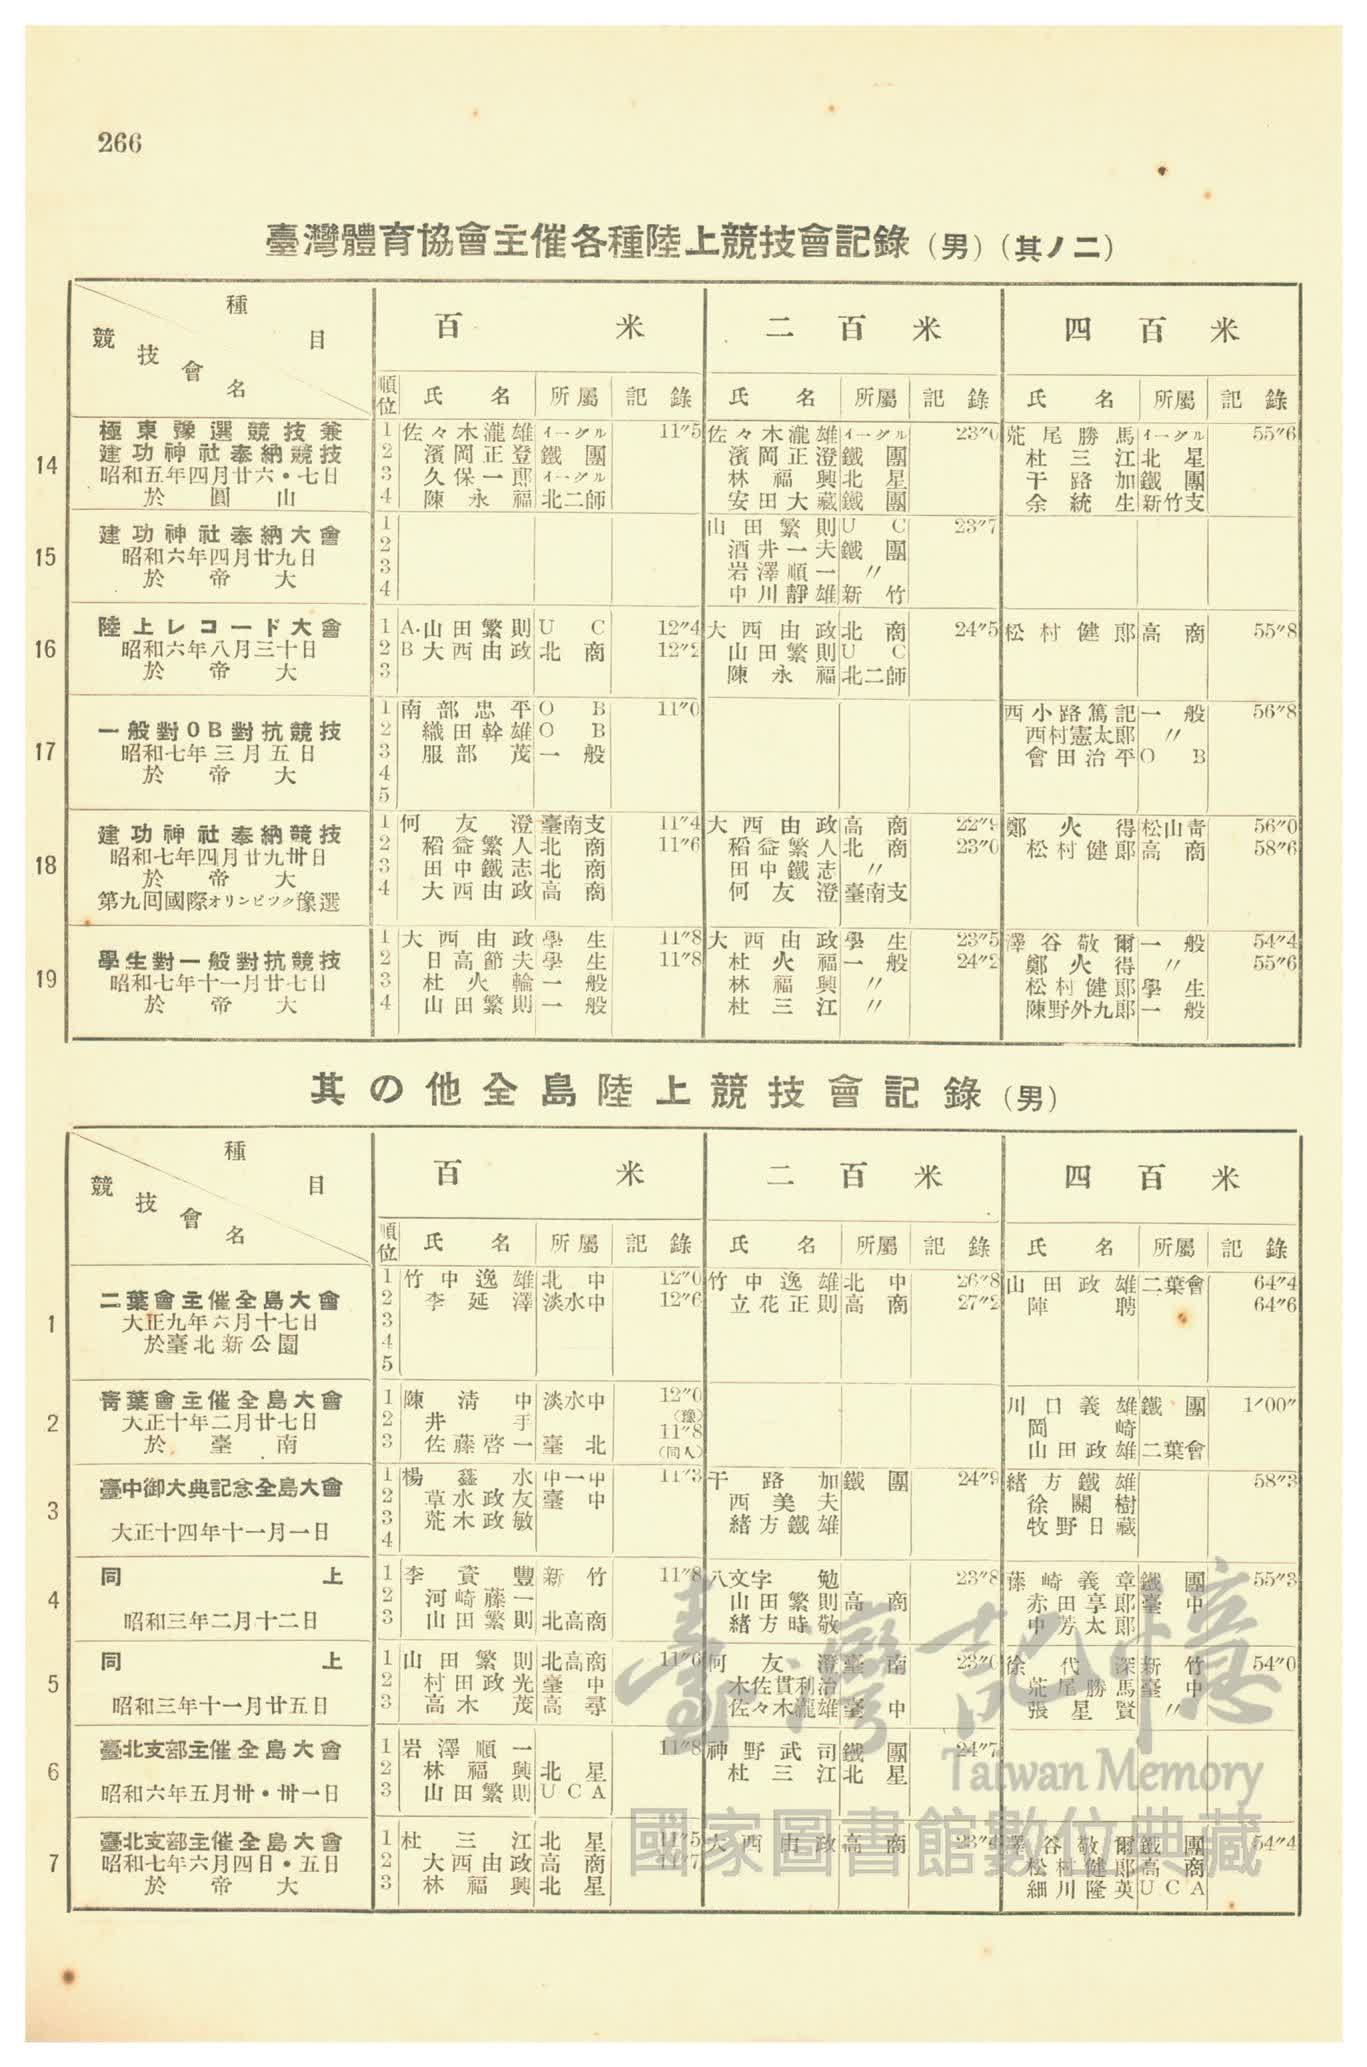 266
臺灣體育協會主催各種陸上競技會記錄（男）（其ノ二）
種目
競技會名
百米 二百米 四百米
順位 氏名 所屬 記錄 氏名 所屬 記錄 氏名 所屬 記錄
14
極東豫選競技兼
建功神社奉納競技
昭和五年四月廿六・七日
於圓山
1 佐々木瀧雄 イーグル 11″5 佐々木瀧雄 イーグル 23″0 荒尾勝馬 イーグル 55″6
2 濱岡正登 鐵團 濱岡正澄 鐵團 杜三江 北星
3 久保一郎 イーグル 林福興 北星 干路加 鐵團
4 陳永福 北二師 安田大藏 鐵團 余統生 新竹支
15
建功神社奉納大會
昭和六年四月廿九日
於帝大
1 山田繁則 UC 23″7
2 酒井一夫 鐵團
3 岩澤順一 〃
4 中川靜雄 新竹
16
陸上レコード大會
昭和六年八月三十日
於帝大
1 A.山田繁則 UC 12″4 大西由政 北商 24″5 松村健郎 高商 55″8
2 B大西由政 北商 12″2 山田繁則 UC
3 陳永福 北二師
17
一般對OB對抗競技
昭和七年三月五日
於帝大
1 南部忠平 OB 11″0 西小路篤記 一般 56″8
2 織田幹雄 OB 西村憲太郎 〃
3 服部茂 一般 會田治平 OB
4
5
18
建功神社奉納競技
昭和七年四月廿九卅日
於帝大
第九回國際オリンピツク豫選
1 何友澄 臺南支 11″4 大西由政 高商 22″9 鄭火得 松山靑 56″0
2 稻益繁人 北商 11″6 稻益繁人 北商 23″0 松村健郎 高商 58″6
3 田中鐵志 北商 田中鐵志 〃
4 大西由政 高商 何友澄 臺南支
19
學生對一般對抗競技
昭和七年十一月廿七日
於帝大
1 大西由政 學生 11″8 大西由政 學生 23″5 澤谷敬爾 一般 54″4
2 日高節夫 學生 11″8 杜火福 一般 24″2 鄭火得 〃 55″6
3 杜火輪 一般 林福興 〃 松村健郎 學生
4 山田繁則 一般 杜三江 〃 陳野外九郎 一般
其の他全島陸上競技會記錄（男）
種目
競技會名
百米 二百米 四百米
順位 氏名 所屬 記錄 氏名 所屬 記錄 氏名 所屬 記錄
1
二葉會主催全島大會
大正九年六月十七日
於臺北新公園
1 竹中逸雄 北中 12″0 竹中逸雄 北中 26″8 山田政雄 二葉會 64″4
2 李延澤 淡水中 12″6 立花正則 高商 27″2 陣聘 64″6
3
4
5
2
靑葉會主催全島大會
大正十年二月廿七日
於臺南
1 陳清中 淡水中 12″0 川口義雄 鐵團 1′00″
2 井手 （豫）11″8 岡崎
3 佐藤啓一 臺北 （同人） 山田政雄 二葉會
3
臺中御大典記念全島大會
大正十四年十一月一日
1 楊鑫水 中一中 11″3 干路加 鐵團 24″9 緒方鐵雄 58″3
2 草水政友 臺中 西美夫 徐關樹
3 荒木政敏 緒方鐵雄 牧野日藏
4
4
同上
昭和三年二月十二日
1 李資豐 新竹 11″8 八文字勉 23″8 藤崎義章 鐵團 55″3
2 河崎藤一 山田繁則 高商 赤田享郎 臺中
3 山田繁則 北高商 緒方時敬 中芳太郎
5
同上
昭和三年十一月廿五日
1 山田繁則 北高商 11″6 何友澄 臺南 23″0 徐代深 新竹 54″0
2 村田政光 臺中 木佐貫利治 荒尾勝馬 臺中
3 高木茂 高尋 佐々木瀧雄 臺中 張星賢 〃
6
臺北支部主催全島大會
昭和六年五月卅・卅一日
1 岩澤順一 11″8 神野武司 鐵團 24″7
2 林福興 北星 杜三江 北星
3 山田繁則 UCA
7
臺北支部主催全島大會
昭和七年六月四日・五日
於帝大
1 杜三江 北星 11″5 大西由政 高商 23″4 澤谷敬爾 鐵團 54″4
2 大西由政 高商 11″7 松村健郎 高商
3 林福興 北星 細川隆英 UCA
臺灣記憶
Taiwan Memory
國家圖書館數位典藏